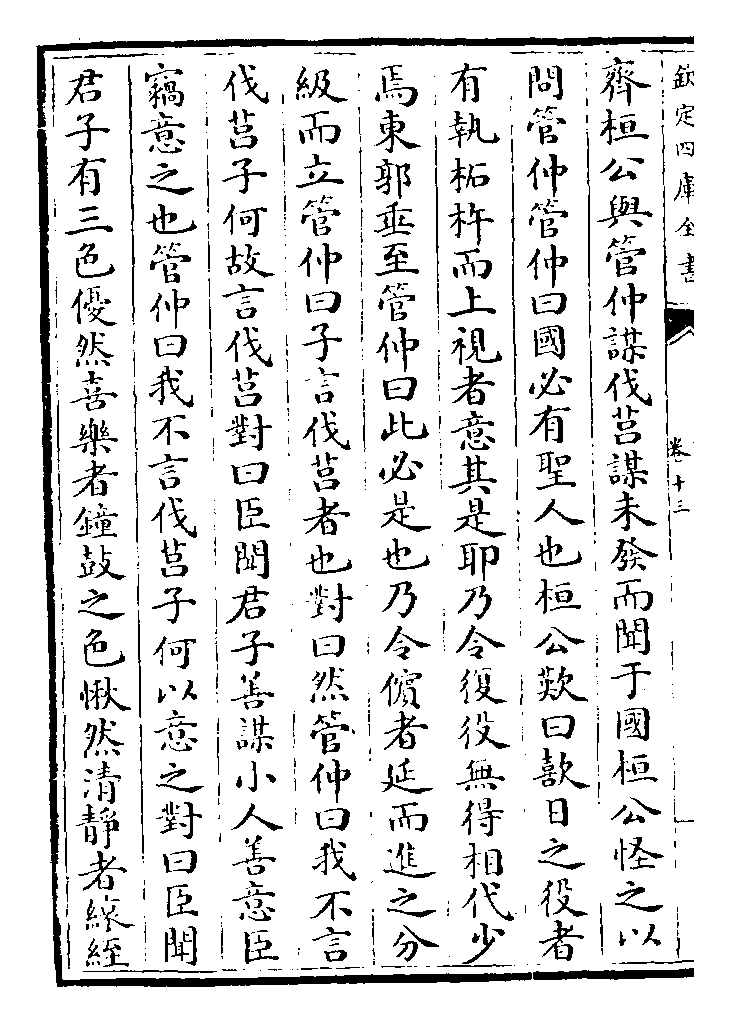 欽定四庫全書
卷十三
齊桓公與管仲謀伐莒謀未發而聞于國桓公怪之以
問管仲管仲曰國必有聖人也桓公歎曰歖日之役者
有執柘杵而上視者意其是耶乃令復役無得相代少
焉東郭垂至管仲曰此必是也乃令儐者延而進之分
級而立管仲曰子言伐莒者也對曰然管仲曰我不言
伐莒子何故言伐莒對曰臣聞君子善謀小人善意臣
竊意之也管仲曰我不言伐莒子何以意之對曰臣聞
君子有三色優然喜樂者鐘鼓之色愀然清靜者縗絰